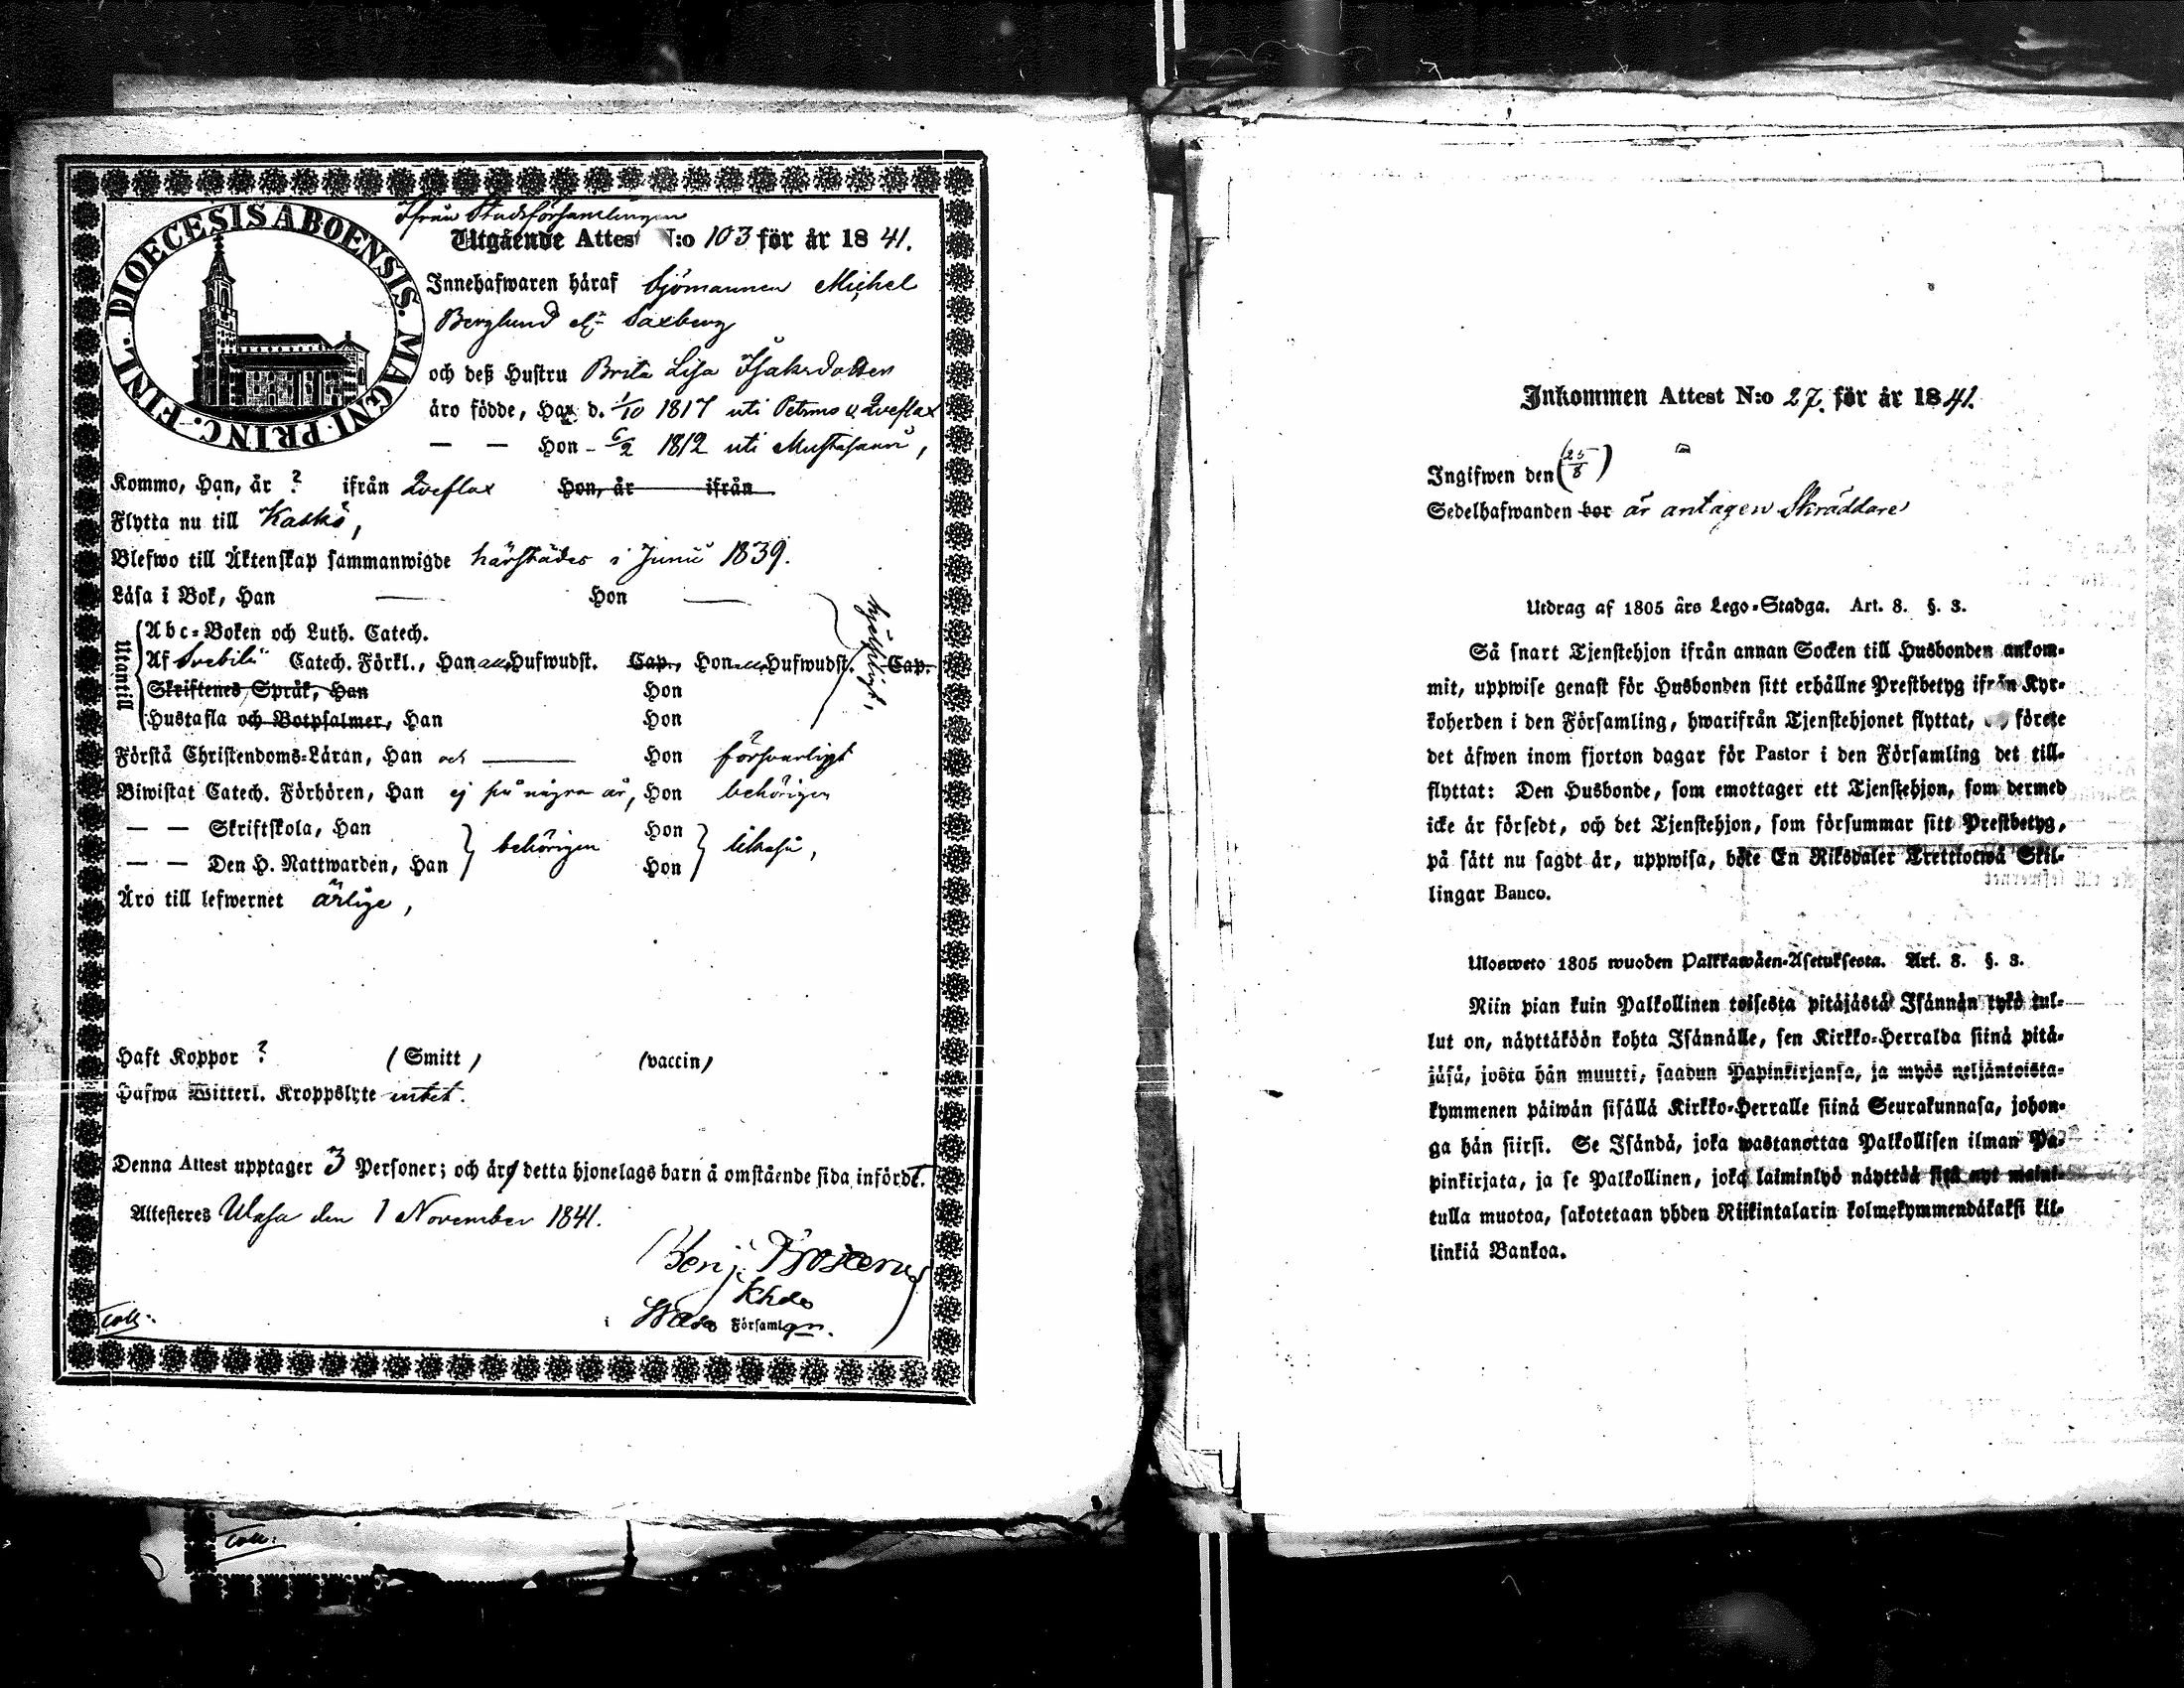 DIOECESIS ABOENSIS. MAGNI PRINC. FINL.
Ifrån Stadsförsamlingen
Utgående Attest N:o 103 för år 1841.
Innehafwaren häraf Sjömannen Michel
Berglund elr Saxberg
och deß Hustru Brita Lisa Isaksdotter
äro födde, Han d. 1/10 1817 uti Petsmo i Qveflax
— — Hon - 6/2 1812 uti Mustasaari,
Kommo, Han, är ? ifrån Qveflax Hon, är ifrån
Flytta nu till Kaskö,
Blefwo till Äktenskap sammanwigde härstädes i Junii 1839.
Läsa i Bok, Han — Hon —
Utantill
Abc-Boken och Luth. Catech.
Af Svebilii Catech. Förkl., Han alla Hufwudst. Cap., Hon alla Hufwudst. Cap.
hjelpligt,
Skriftenes Språk, Han Hon
Hustafla och Botpsalmer, Han Hon
Förstå Christendoms-Läran, Han och — Hon försvarligt
Biwistat Catech. Förhören, Han ej på några år, Hon behörigen
— — Skriftskola, Han Hon
behörigen likaså,
— — Den H. Nattwarden, Han Hon
Äro till lefwernet ärlige,
Haft Koppor ? (Smitt) (vaccin)
Hafwa Witterl. Kroppslyte intet.
Denna Attest upptager 3 Personer; och är detta hjonelags barn å omstående sida infördt.
Attesteres Wasa den 1 November 1841.
Benj. Frosterus
Khde
i Wasa Församlgn.
Coll:
Coll:
Inkommen Attest N:o 27. för år 1841.
Ingifwen den (25/8)
Sedelhafwanden bor är antagen Skräddare
Utdrag af 1805 års Lego-Stadga. Art. 8. §. 3.
Så snart Tjenstehjon ifrån annan Socken till Husbonden ankom-
mit, uppwise genast för Husbonden sitt erhållne Prestbetyg ifrån Kyr-
koherden i den Församling, hwarifrån Tjenstehjonet flyttat, förete
det äfwen inom fjorton dagar för Pastor i den Församling det till-
flyttat: Den Husbonde, som emottager ett Tjenstehjon, som dermed
icke är försedt, och det Tjenstehjon, som försummar sitt Prestbetyg,
på sätt nu sagdt är, uppwisa, böte En Riksdaler Trettiotwå Skil-
lingar Banco.
Ulosweto 1805 wuoden Palkkawäen-Asetuksesta. Art. 8. §. 3.
Niin pian kuin Palkollinen toisesta pitäjästä Isännän tykö tul-
lut on, näyttäköön kohta Isännälle, sen Kirkko-Herralda siinä pitä-
jäsä, josta hän muutti, saadun Papinkirjansa, ja myös neljäntoista-
kymmenen päiwän sisällä Kirkko-Herralle siinä Seurakunnasa, johon-
ga hän siirsi. Se Isändä, joka wastanottaa Palkollisen ilman Pa-
pinkirjata, ja se Palkollinen, joka laiminlyö näyttää sitä nyt maini-
tulla muotoa, sakotetaan yhden Riikintalarin kolmekymmendäkaksi kil-
linkiä Bankoa.